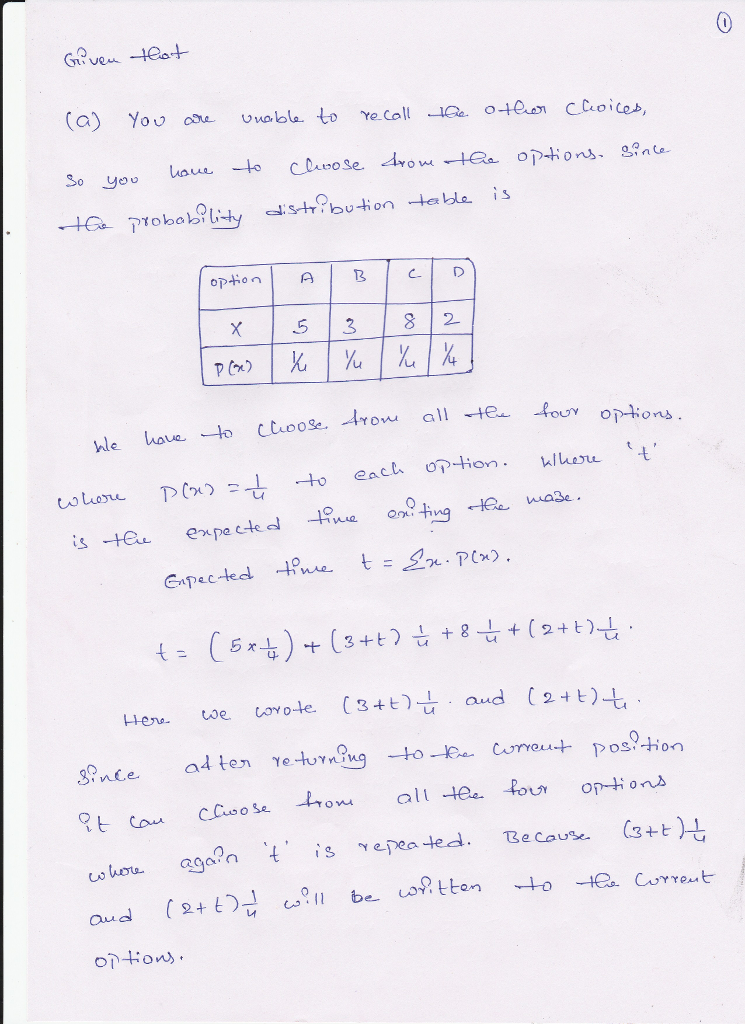 1
Given that
(a) You are unable to recall the other choices,
So you have to choose from the options. Since
the probability distribution table is
option A B C D
X 5 3 8 2
P(x) 1/4 1/4 1/4 1/4
We have to choose from all the four options.
where P(x) = 1/4 to each option. Where 't'
is the expected time exiting the maze.
Expected time t = Σx. P(x).
t = (5×1/4) + (3+t) 1/4 + 8 1/4 + (2+t) 1/4.
Here we wrote (3+t) 1/4. and (2+t) 1/4.
Since after returning to the current position
it can choose from all the four options
where again 't' is repeated. Because (3+t) 1/4
and (2+t) 1/4 will be written to the current
options.